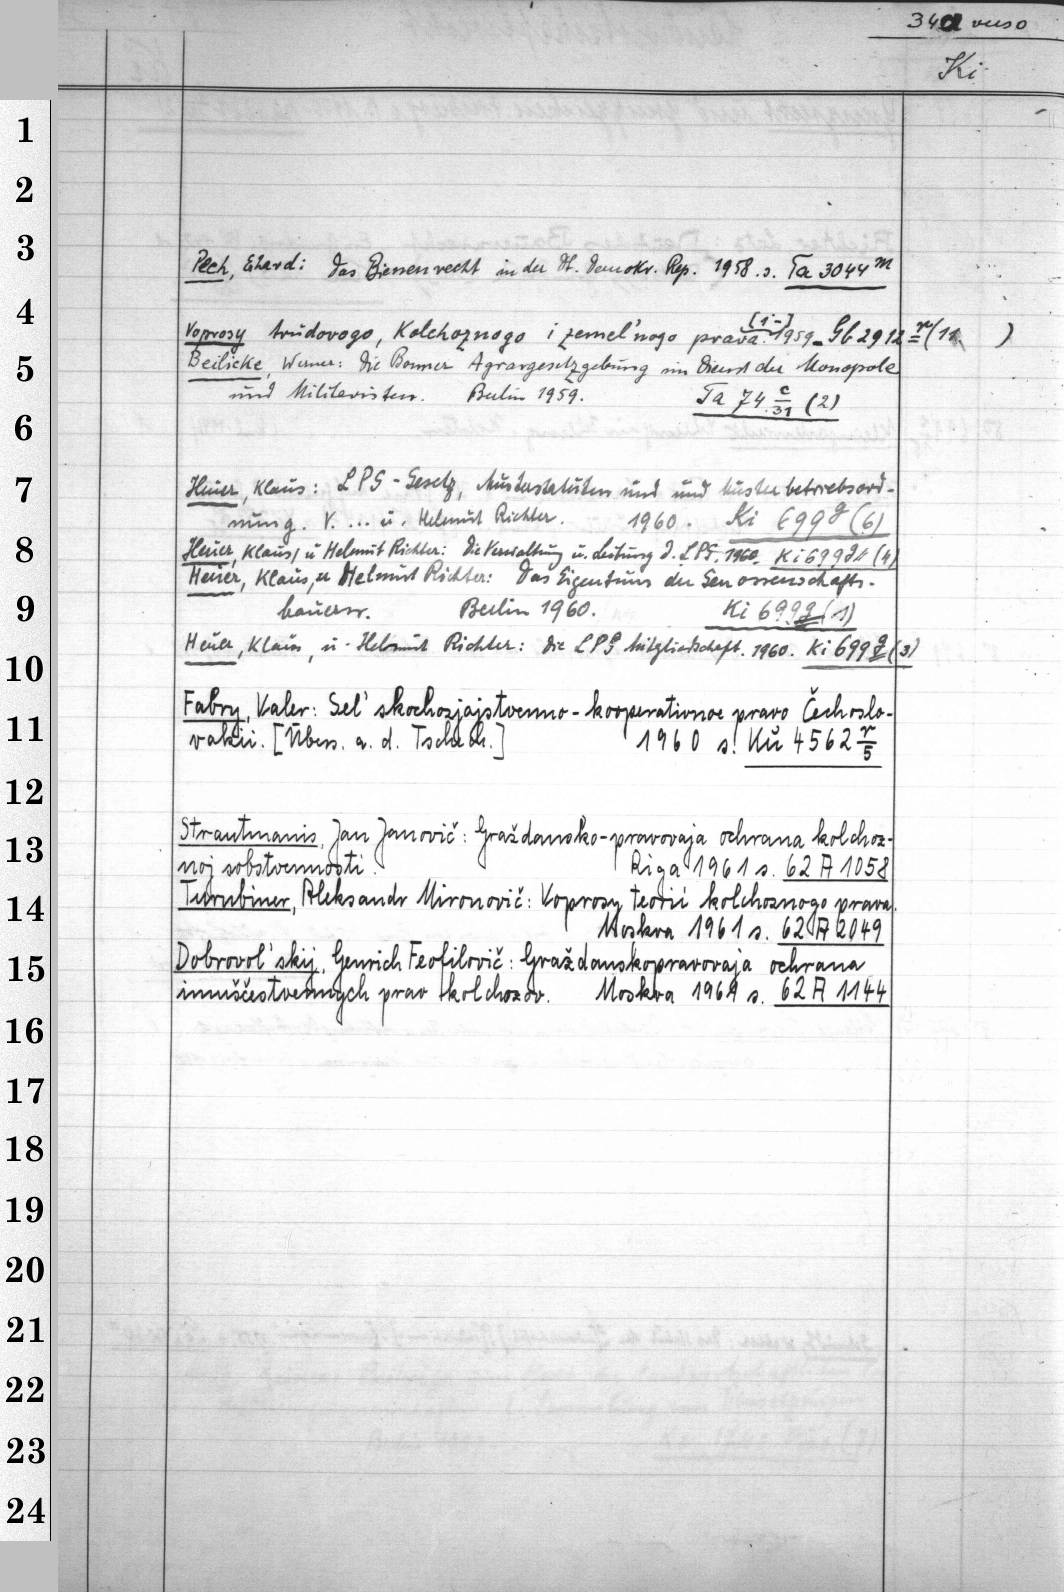 34a verso
Ki
1
2
3
Pech, Erhard: Das Bienenrecht in der Dt. Demokr. Rep. 1958. s. Ta 3044 m
4
Voprosy trudovogo, Kolchoznogo i zemel'nogo prava. [1-] 1959- Gb 2912 n (11 )
5
Beilicke, Werner: Die Bonner Agrargesetzgebung im Dienst der Monopole
und Militaristen. Berlin 1959. Ta 74 c/31 (2)
6
7
Heuer, Klaus: LPG-Gesetz, Musterstatuten und und Musterbetriebsord-
nung. V. ... u. Helmut Richter. 1960. Ki 699 g (6)
8
Heuer, Klaus, u Helmut Richter: Die Verwaltung u. Leitung d. LPG. 1960. Ki 699 g (4)
Heuer, Klaus, u Helmut Richter: Das Eigentum der Genossenschafts-
9
bauern. Berlin 1960. Ki 699 g (1)
Heuer, Klaus, u. Helmut Richter: Die LPG Mitgliedschaft. 1960. Ki 699 g (3)
10
Fabry, Valer: Sel'skochozjajstvenno-kooperativnoe pravo Čechoslo-
11
vakii. [Übers. a. d. Tschech.] 1960 s. Kü 4562 r/5
12
Strautmanis, Jan Janovič: Graždansko-pravovaja ochrana kolchoz-
13
noj sobstvennosti. Riga 1961 s. 62 A 1058
Turubiner, Aleksandr Mironovič: Voprosy teorii kolchoznogo prava.
14
Moskva 1961 s. 62 A 2049
Dobrovol'skij, Genrich Feofilovič: Graždanskopravovaja ochrana
15
imuščestvennych prav kolchozov. Moskva 1961 s. 62 A 1144
16
17
18
19
20
21
22
23
24